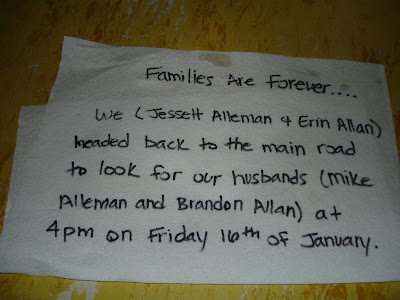 Families Are Forever....
We (Jessett Alleman & Erin Allan)
headed back to the main road
to look for our husbands (Mike
Alleman and Brandon Allan) at
4pm on Friday 16th of January.